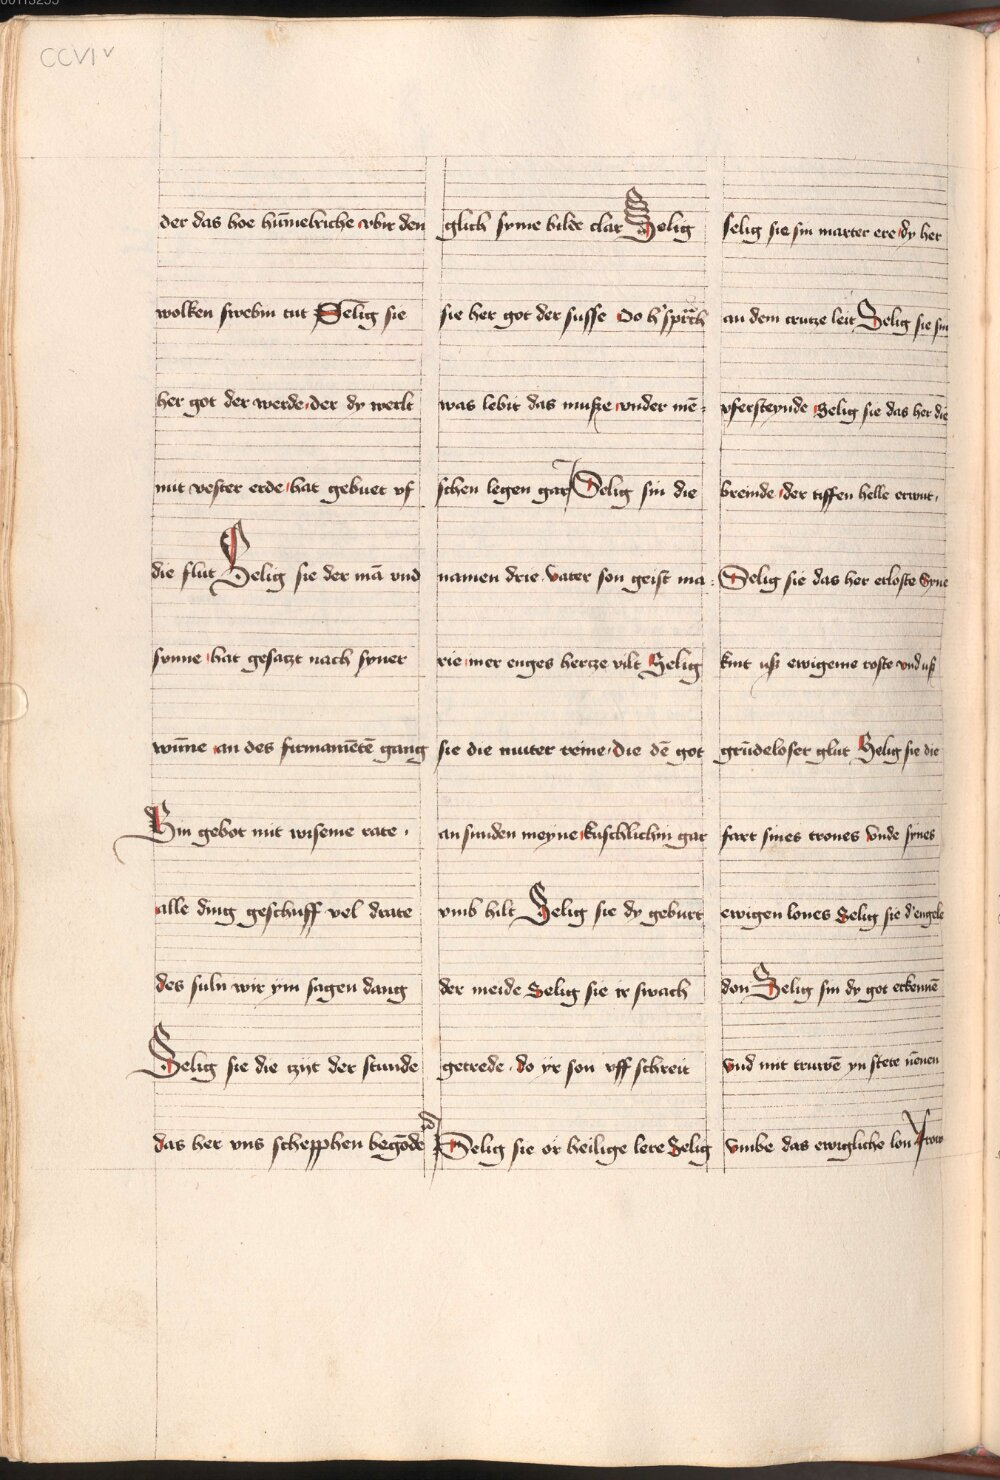 CCVI v
der das hoe hūmelriche vbir den
wolken swebin tut Selig sie
her got der werde der dy werlt
mit vester erde hat gebuet vf
die flut Selig sie der mā vnd
sonne hat gesatzt nach syner
wūne an des firmamētē gang
Sin gebot mit wiseme rate
alle ding geschuff vel drate
des suln wir ym sagen dang
Selig sie die tzijt der stunde
das her vns schepphen begōde
glich syme bilde clar Selig
sie her got der susse Do h' sprach
was lebit das musze vnder mē-
schen legen gar Selig sin die
namen drie vater son geist ma-
rie mer enges hertze vilt Selig
sie die muter reine die dē got
an sunden meyne kuschlichin gar
vmb hilt Selig sie dy geburt
der meide Selig sie ir swach
getrede do yr son vff schreit
Selig sie or heilige lere Selig
selig sie sin marter ere dy her
an dem crutze leit Selig sie sin
vfersteynde Selig sie das her die
breinde der tiffen helle erwut
Selig sie das her erloste Syne
kint usz ewigeme roste vnd usz
grūdeloser glut Selig sie die
fart sines trones Vnde synes
ewigen lones Selig sie d' engele
don Selig sin dy got erkennē
Vnd mit truwē yn stete nēnen
Vmbe das ewigliche lon